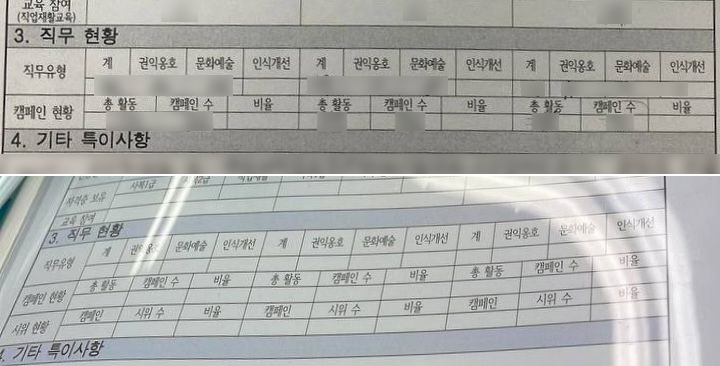 교육 참여
(직업재활교육)
3. 직무 현황
직무유형 계 권익옹호 문화예술 인식개선 계 권익옹호 문화예술 인식개선 계 권익옹호 문화예술 인식개선
캠페인 현황 총 활동 캠페인 수 비율 총 활동 캠페인 수 비율 총 활동 캠페인 수 비율
4. 기타 특이사항
자격증 보유 사복1급
교육 참여
3. 직무 현황
직무유형 계 권익옹호 문화예술 인식개선 계 권익옹호 문화예술 인식개선 계 권익옹호 문화예술 인식개선
캠페인 현황 총 활동 캠페인 수 비율 총 활동 캠페인 수 비율 총 활동 캠페인 수 비율
시위 현황 캠페인 시위 수 비율 캠페인 시위 수 비율 캠페인 시위 수 비율
4. 기타 특이사항